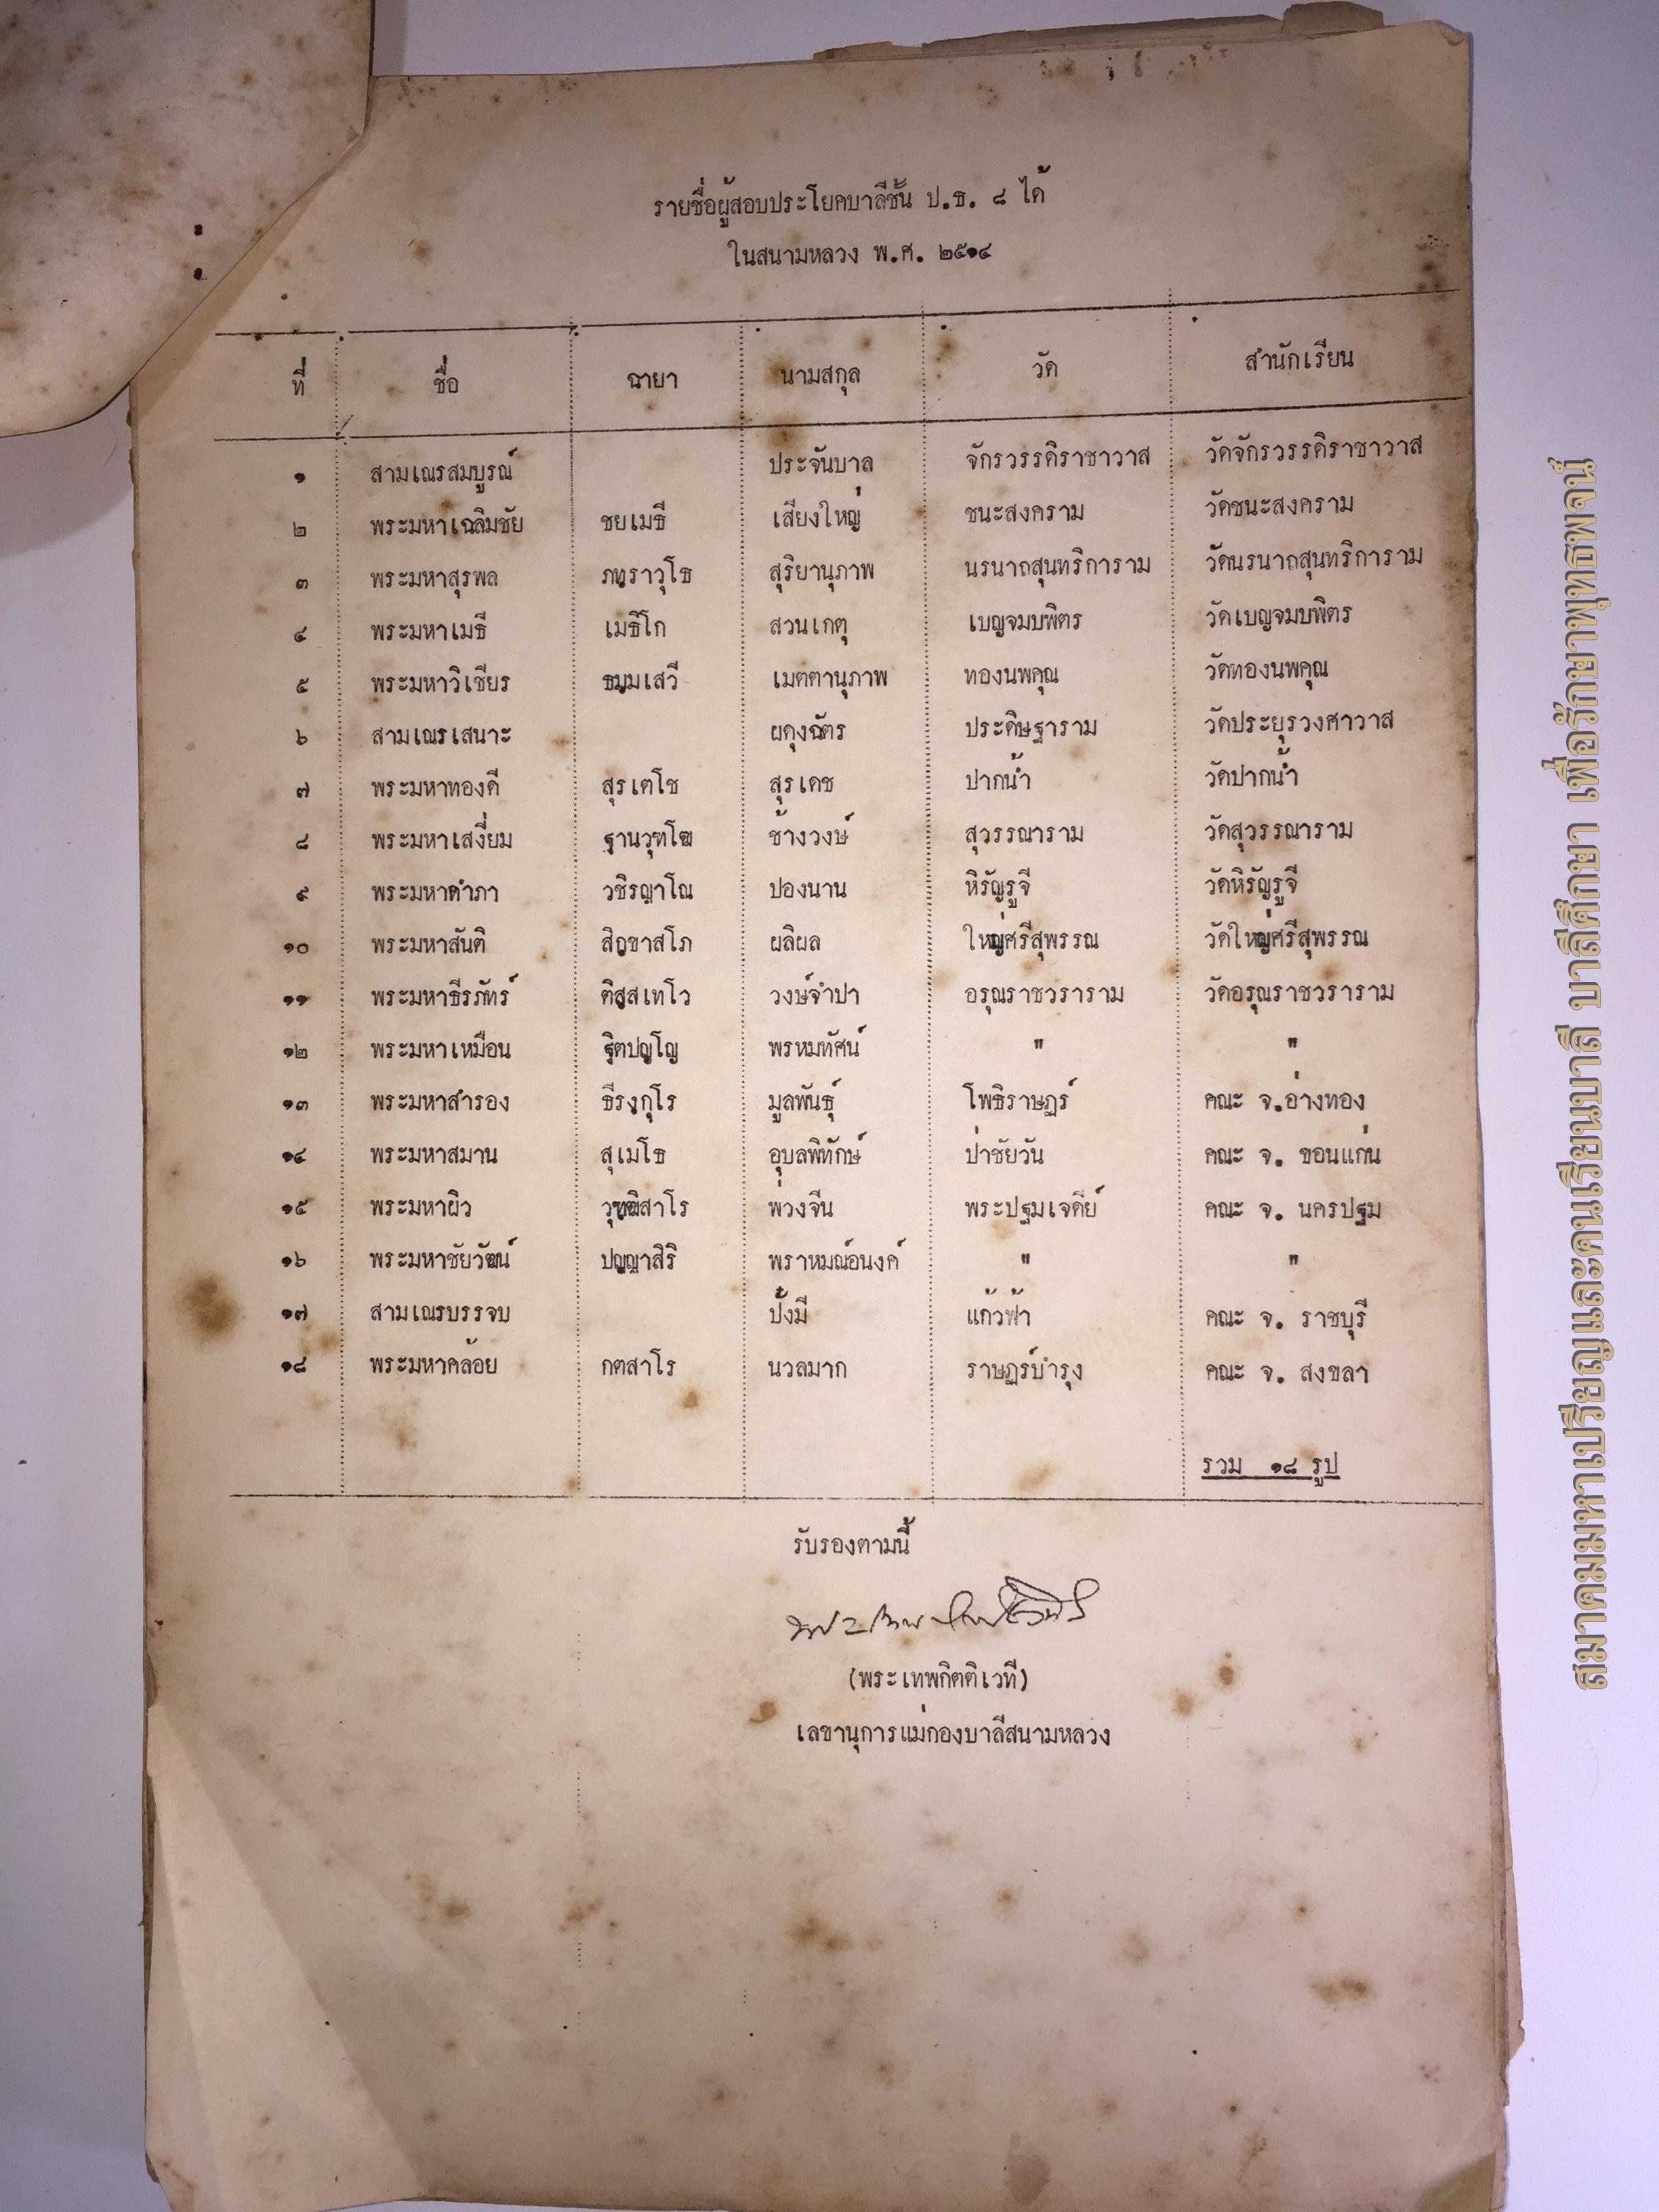 รายชื่อผู้สอบประโยคบาลีชั้น ป.ธ. ๘ ได้
ในสนามหลวง พ.ศ. ๒๕๑๔
ที่ ชื่อ ฉายา นามสกุล วัด สำนักเรียน
๑ สามเณรสมบูรณ์ ประจันบาล จักรวรรดิราชาวาส วัดจักรวรรดิราชาวาส
๒ พระมหาเฉลิมชัย ชยเมธี เสียงใหญ่ ชนะสงคราม วัดชนะสงคราม
๓ พระมหาสุรพล ภทฺราวุโธ สุริยานุภาพ นรนาถสุนทริการาม วัดนรนาถสุนทริการาม
๔ พระมหาเมธี เมธิโก สวนเกตุ เบญจมบพิตร วัดเบญจมบพิตร
๕ พระมหาวิเชียร ธมฺมเสวี เมตตานุภาพ ทองนพคุณ วัดทองนพคุณ
๖ สามเณรเสนาะ ผดุงฉัตร ประดิษฐาราม วัดประยุรวงศาวาส
๗ พระมหาทองดี สุรเตโช สุรเดช ปากน้ำ วัดปากน้ำ
๘ พระมหาเสงี่ยม ฐานวุฑโฒ ช้างวงษ์ สุวรรณาราม วัดสุวรรณาราม
๙ พระมหาคำภา วชิรญาโณ ปองนาน หิรัญรูจี วัดหิรัญรูจี
๑๐ พระมหาสันติ สิงฺขาสโภ ผลิผล ใหญ่ศรีสุพรรณ วัดใหญ่ศรีสุพรรณ
๑๑ พระมหาธีรภัทร์ ติสฺสเทโว วงษ์จำปา อรุณราชวราราม วัดอรุณราชวราราม
๑๒ พระมหาเหมือน ฐิตปญฺโญ พรหมทัศน์ " "
๑๓ พระมหาสำรอง ธีรงฺกุโร มูลพันธุ์ โพธิราษฎร์ คณะ จ.อ่างทอง
๑๔ พระมหาสมาน สุเมโธ อุบลพิทักษ์ ป่าชัยวัน คณะ จ. ขอนแก่น
๑๕ พระมหาผิว วุฑฺฒิสาโร พ่วงจีน พระปฐมเจดีย์ คณะ จ. นครปฐม
๑๖ พระมหาชัยวัฒน์ ปญฺญาสิริ พราหมณ์อนงค์ " "
๑๗ สามเณรบรรจบ ปั้งมี แก้วฟ้า คณะ จ. ราชบุรี
๑๘ พระมหาคล้อย กตสาโร นวลมาก ราษฎร์บำรุง คณะ จ. สงขลา
รวม ๑๘ รูป
รับรองตามนี้
(พระเทพกิตติเวที)
เลขานุการแม่กองบาลีสนามหลวง
สมาคมมหาเปรียญและคนเรียนบาลี บาลีศึกษา เพื่อรักษาพุทธพจน์